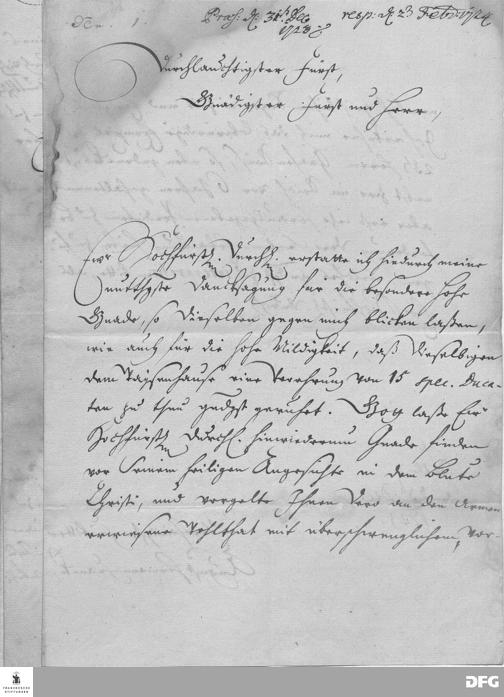 No. 1.
Præs. d. 31st Dec 1723
resp: d. 23 Febr. 1724
Durchlauchtigster Fürst,
Gnädigster Fürst und Herr,
Ewr Hochfürstl. Durchl. erstatte ich hiedurch meine
unterthgste Dancksagung für die besondere hohe
Gnade, so dieselben gegen mich blicken laßen,
wie auch für die hohe Mildigkeit, daß dieselbigen
dem Waysenhause eine Verehrung von 15 spec. Duca-
ten zu thun gndgst geruhet. Gott laße Ewr
Hochfürstl. Durchl. hinwiederum Gnade finden
vor Seinem heiligen Angesichte in dem Blute
Christi, und vergelte Ihnen dero an den Armen
erwiesene Wohlthat mit überschwenglichem,
FRANCKESCHE
STIFTUNGEN
DFG